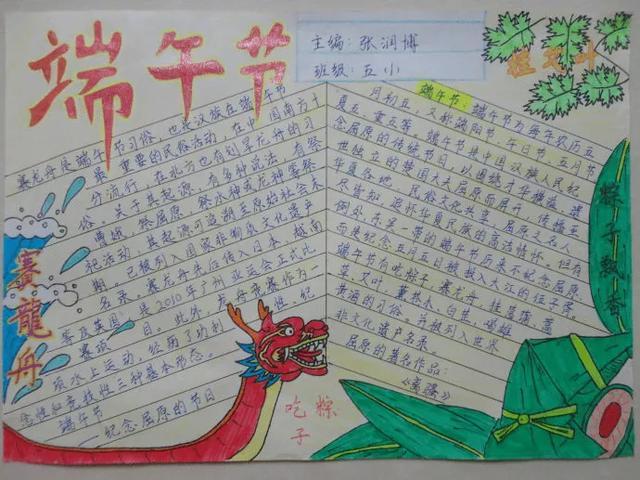 端午节
主编：张润博
班级：五小
挂艾叶
赛龙舟是端午节习俗，也是汉族在端午节
最重要的民俗活动，在中国南方十
分流行，在北方也有划旱龙舟的习
俗。关于其起源，有多种说法，有祭
曹娥，祭屈原，祭水神或龙神等祭
祀活动，其起源可追溯至原始社会末
期。已被列入国家非物质文化遗产
名录。赛龙舟先后传入日本，越南
等及英国，是2010年广州亚运会正式比
赛项目。此外，龙舟竞赛作为一
项水上运动，经历了功利性、纪
念性和竞技性三种基本形态。
端午节
——纪念屈原的节日
端午节：端午节为每年农历五
月初五，又称端阳节，午日节，五月节
夏五，重五等，端午节是中国汉族人民纪
念屈原的传统节日，以围绕才华横溢、遗
世独立的楚国大夫屈原而展开，传播至
华夏各地，民俗文化共享，屈原之名人
尽皆知，追怀华夏民族的高洁情怀。但有
例外，东吴一带的端午节历来不纪念屈原，
而是纪念五月五日被投入大江的伍子胥。
端午节有吃粽子，赛龙舟，挂菖蒲，蒿
草，艾叶，薰苍术，白芷，喝雄
黄酒的习俗。并被列入世界
非文化遗产名录。
屈原的著名作品：
《离骚》
赛龍舟
粽子飘香
吃粽子